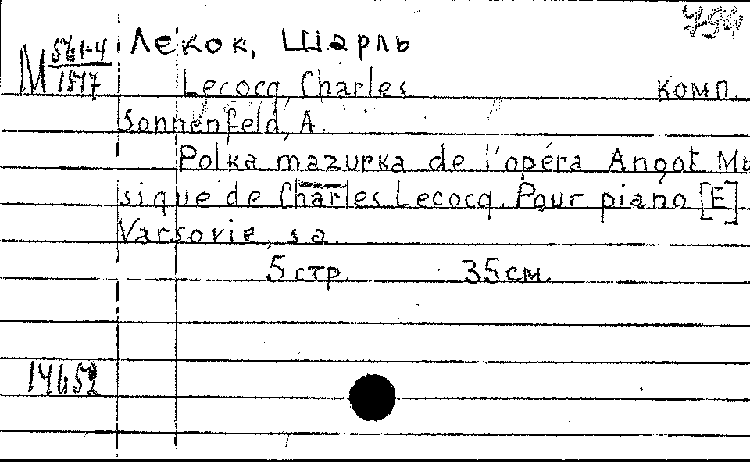 794
Лекок, Шарль
М 561-4/1517
Lecocq, Charles комп.
Sonnenfeld, A.
Polka mazurka de l'opéra Angot Mu
sique de Charles Lecocq. Pour piano [E]
Varsovie, s a
5 стр. 35 см.
14652